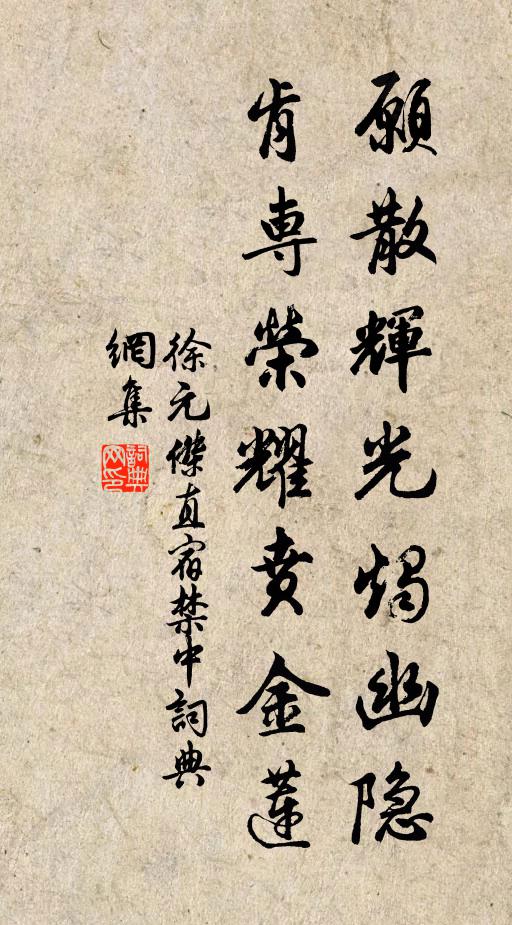 願散輝光燭幽隐
肯専榮耀賁金蓮
徐元傑直宿禁中詞典
網集
詞典
网印